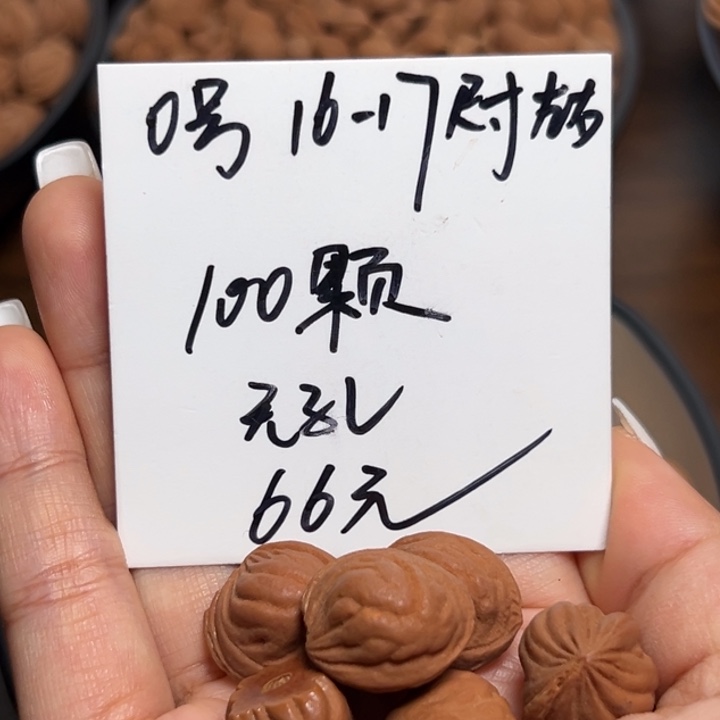 0号 16-17尉
100颗
无孔
66元